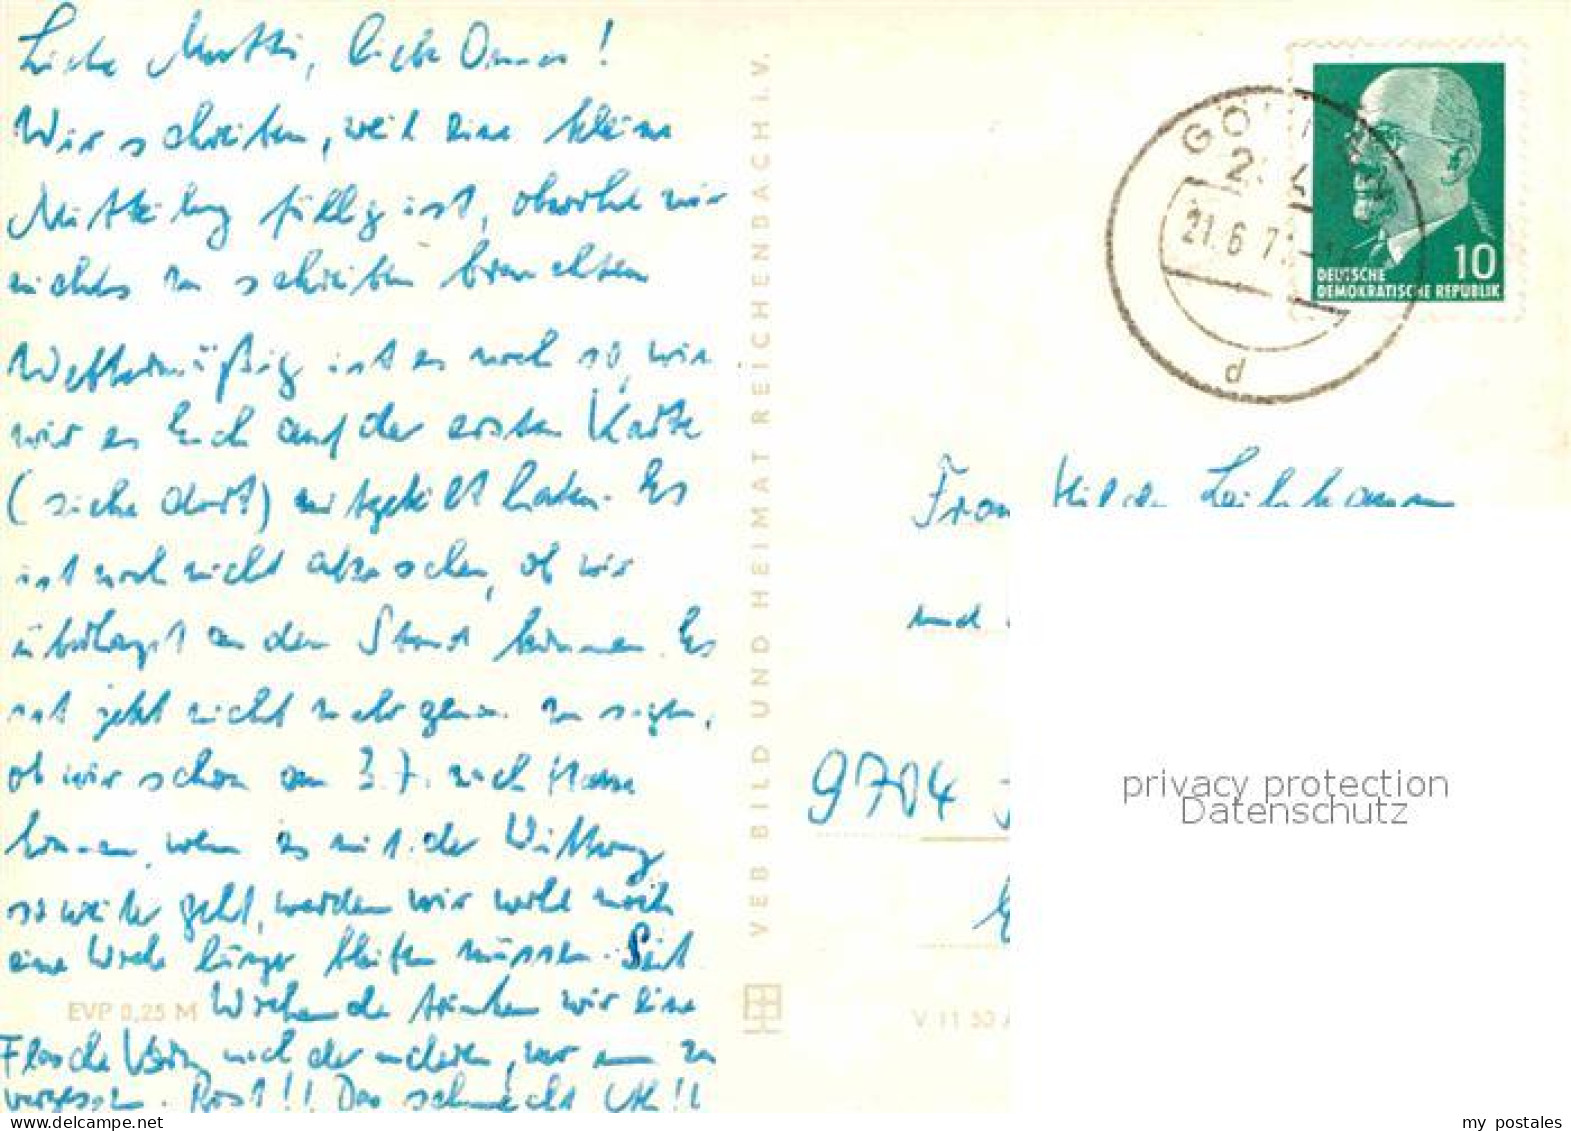 Liebe Mutti, liebe Oma!
Wir schreiben, weil eine kleine
Mitteilung fällig ist, obwohl wir
nichts zu schreiben brauchten
Wettermäßig ist es noch so, wie
wir es Euch auf der ersten Karte
(siehe dort) mitgeteilt haben. Es
ist noch nicht abzusehen, ob wir
überhaupt an den Strand können. Es
ist jetzt nicht mehr genau zu sagen,
ob wir schon am 3.7. nach Hause
können, wenn es mit der Witterung
so weiter geht, werden wir wohl noch
eine Woche länger bleiben müssen. Seit
Wochenende trinken wir eine
Flasche nach der anderen, nur um zu
vergessen. Prost!! Das schmeckt
EVP 0,25 M
VEB BILD UND HEIMAT REICHENBACH i. V.
V 11 50
21.6.7
d
10
DEUTSCHE
DEMOKRATISCHE REPUBLIK
Frau Hilde
und
9704
privacy protection
Datenschutz
my postales